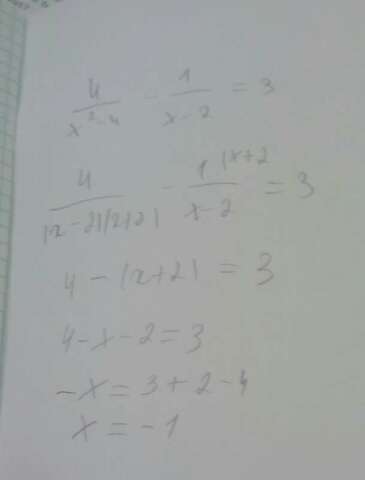 4/(x²-4) - 1/(x-2) = 3
4/((x-2)(2+2)) - 1/(x-2) (x+2 = 3
4-(x+2) = 3
4-x-2=3
-x=3+2-4
x=-1